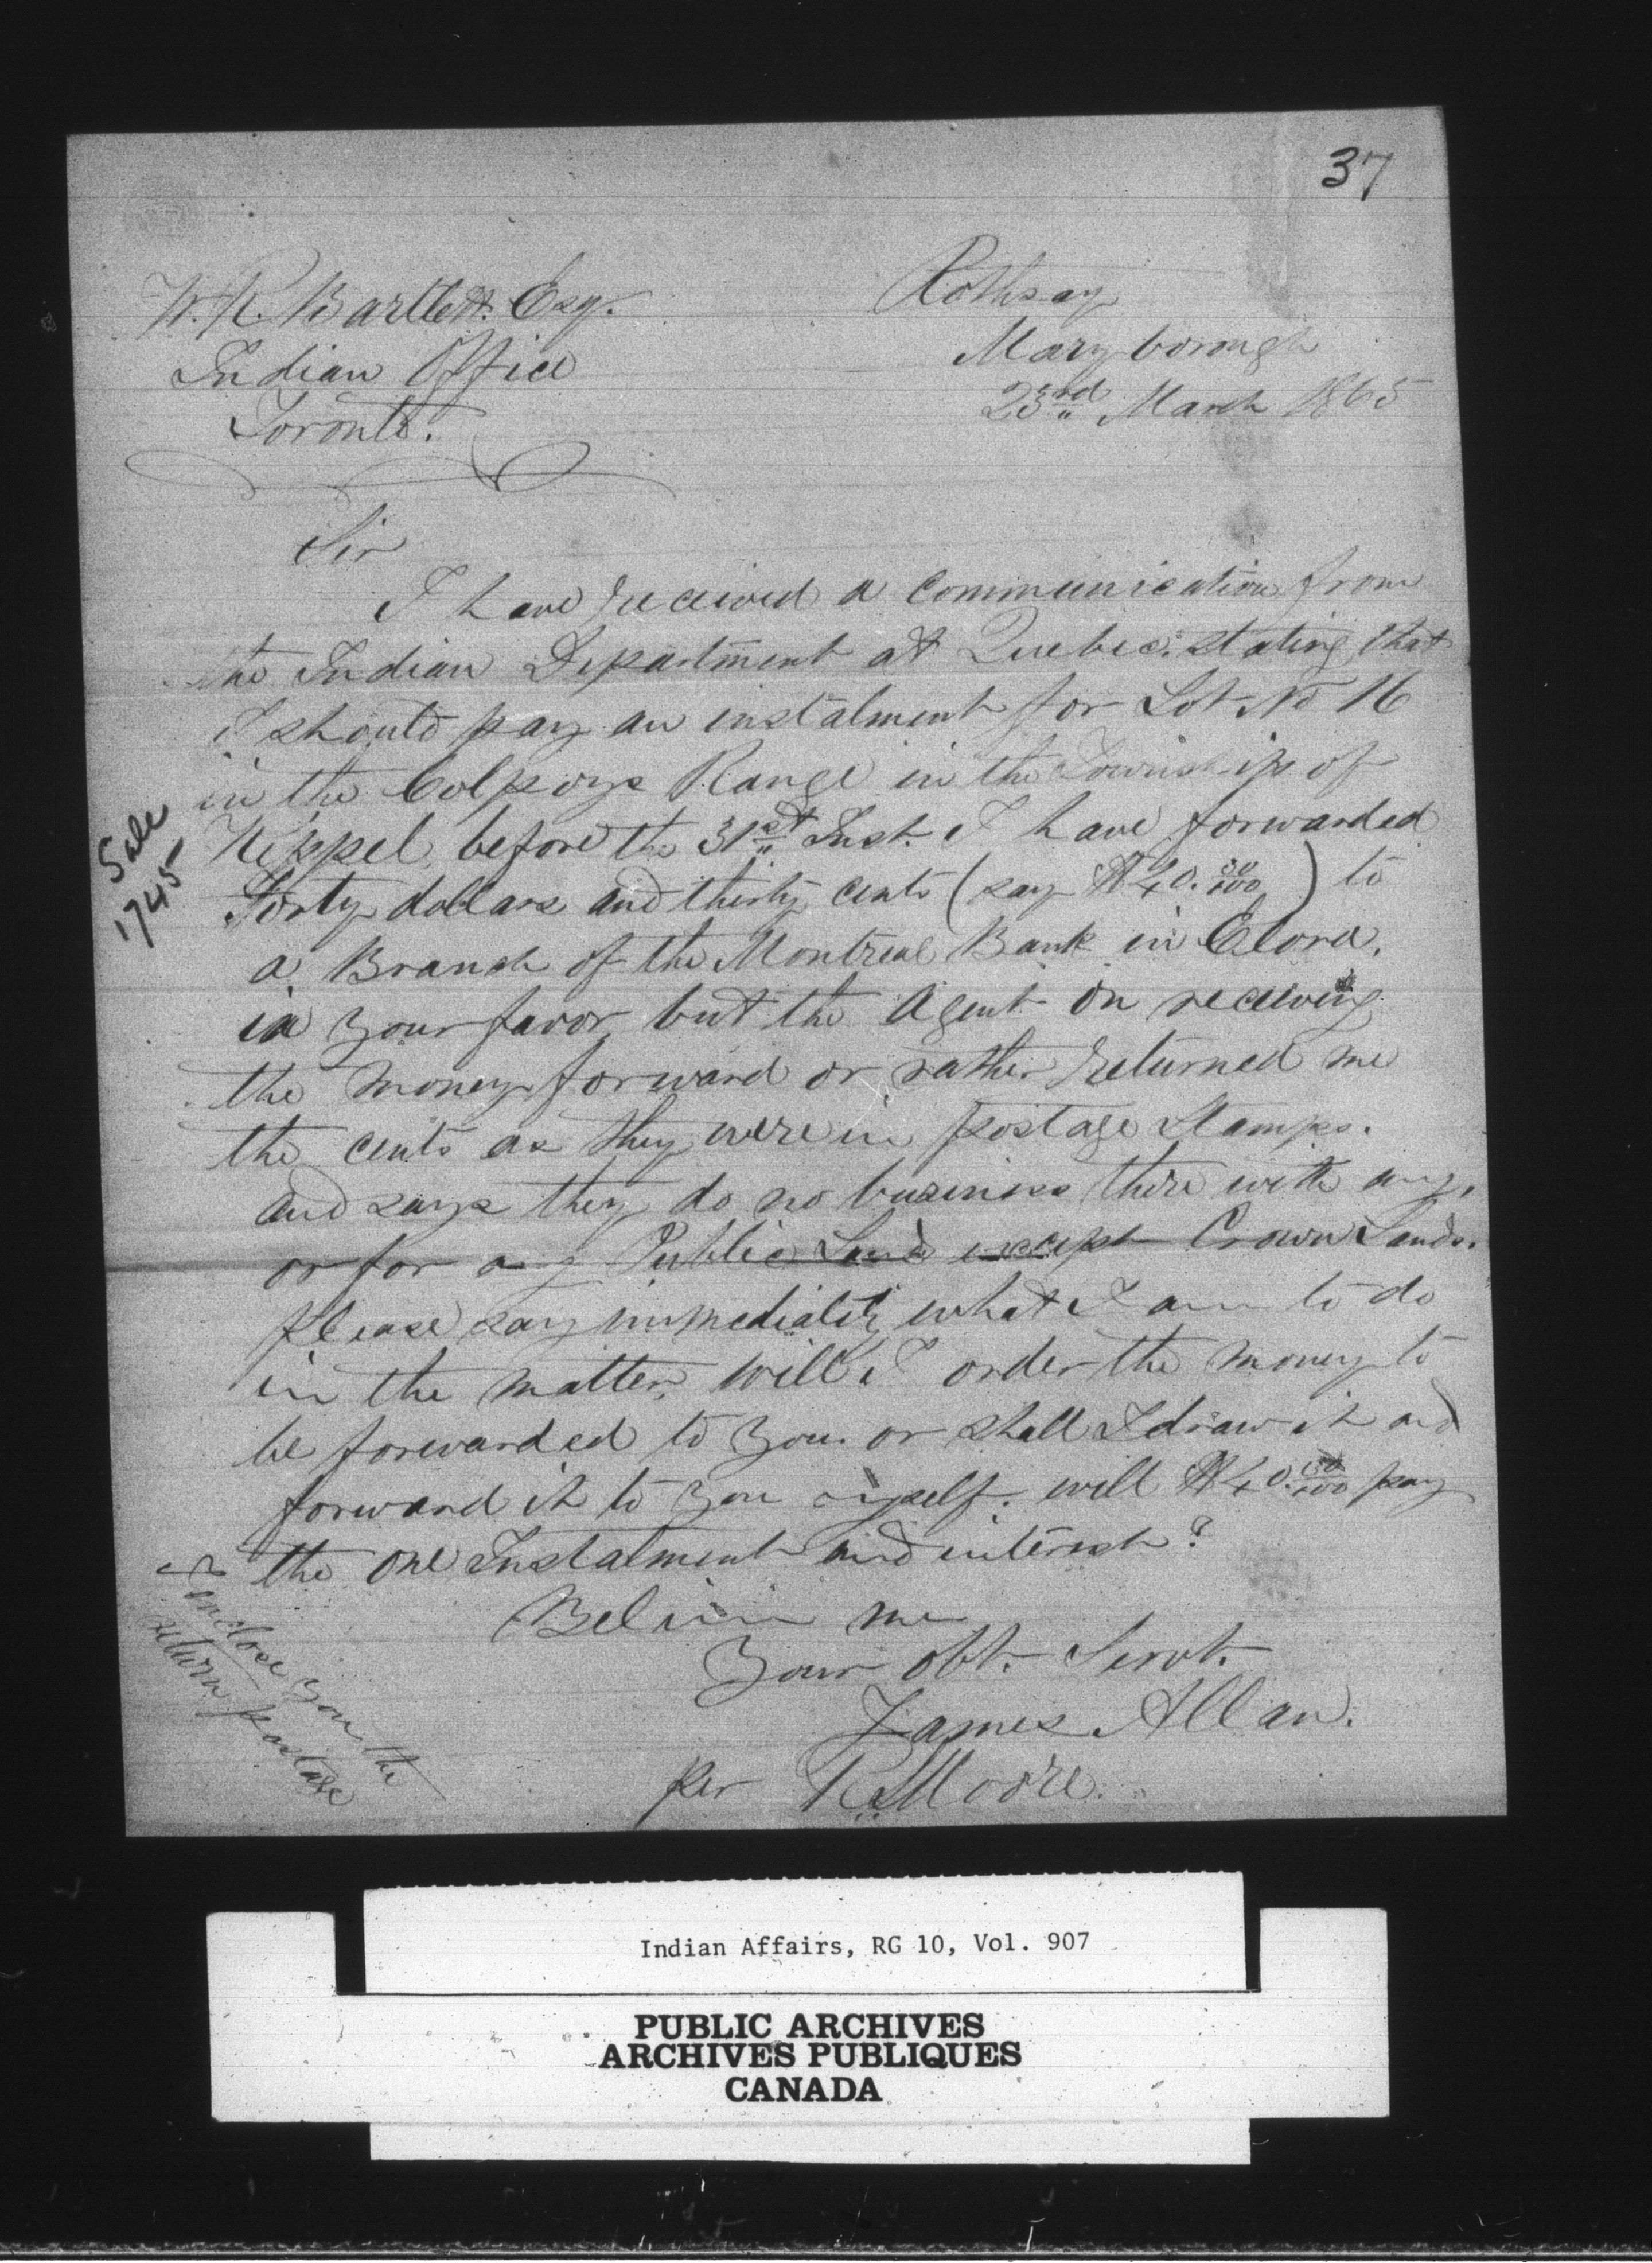 37
W. R. Bartlett. Esq.
Indian Office
Toronto.
Rothsay
Maryborough
23rd March 1865
Sir
I have received a Communication from
the Indian Department at Quebec. stating that
I should pay an instalment for Lot No 16
in the Colpoys Range in the Township of
Keppel, before the 31st Inst. I have forwarded
Forty dollars and thirty cents (say $40.30/100) to
a Branch of the Montreal Bank in Elora.
in your favor, but the Agent on receiving
the money forward or rather returned me
the cents as they were in postage Stamps.
and says they do no business there with any,
or for any Public Land except Crown Lands.
please say immediately what I am to do
in the matter, will I order the money to
be forwarded to you. or shall I draw it and
forward it to you myself. will $40. pay
the one Instalment and interest?
Believe me
Your obt. Servt.
James Allan.
per R. Moore.
Sale
1745
I enclose you the
return postage
Indian Affairs, RG 10, Vol. 907
PUBLIC ARCHIVES
ARCHIVES PUBLIQUES
CANADA